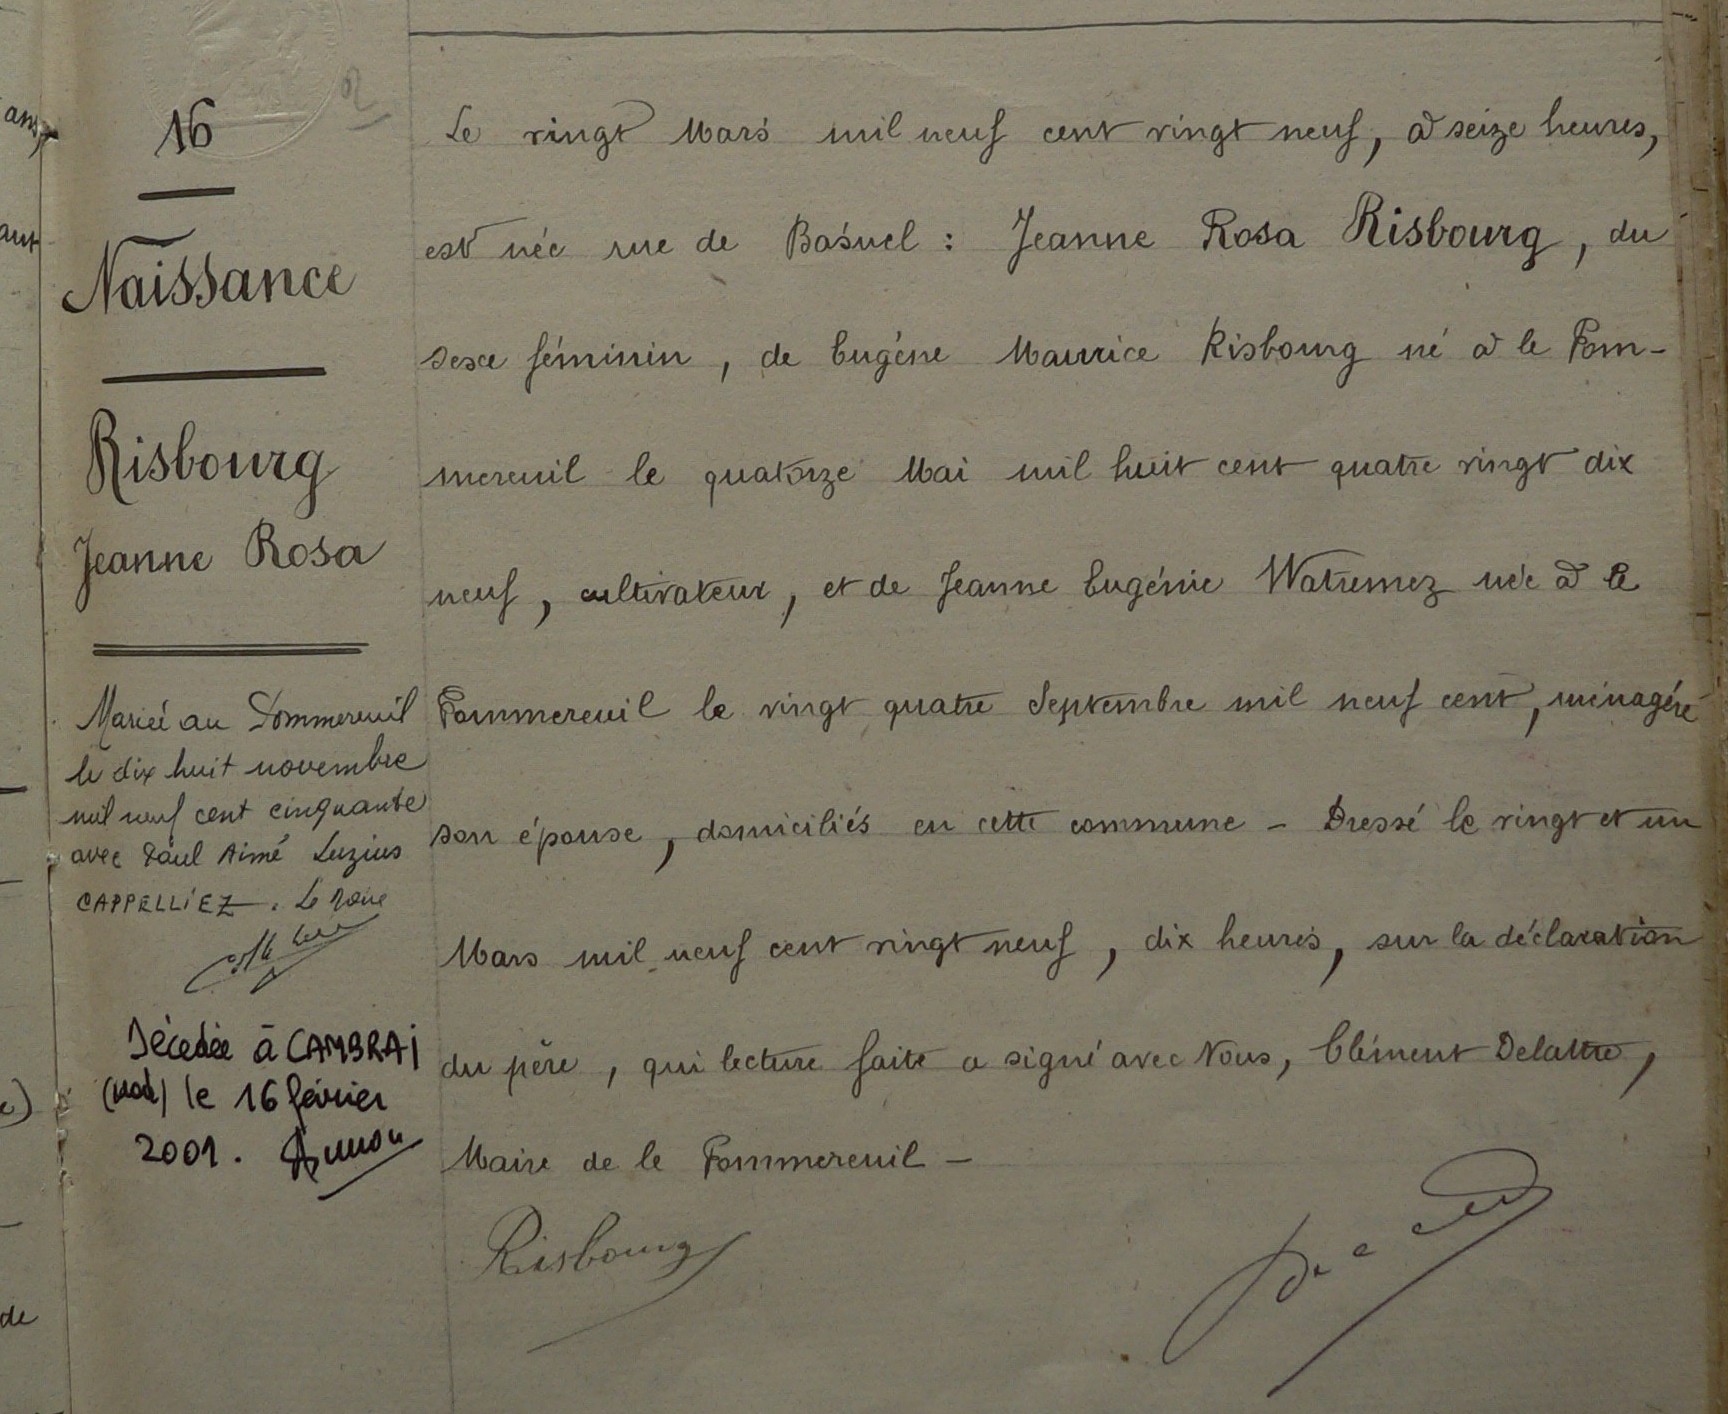 16
Naissance
Risbourg
Jeanne Rosa
Mariée au Pommereuil
le dix huit novembre
mil neuf cent cinquante
avec Paul Aimé Luzius
CAPPELLIEZ. Le Maire
Décédée à CAMBRAI
(Nord) le 16 février
2001.
Le vingt Mars mil neuf cent vingt neuf, à seize heures,
est née rue de Basuel : Jeanne Rosa Risbourg, du
sexe féminin, de Eugène Maurice Risbourg né à le Pom-
mereuil le quatorze Mai mil huit cent quatre vingt dix
neuf, cultivateur, et de Jeanne Eugénie Watremez née à le
Pommereuil le vingt quatre Septembre mil neuf cent, ménagère
son épouse, domiciliés en cette commune - Dressé le vingt et un
Mars mil neuf cent vingt neuf, dix heures, sur la déclaration
du père, qui lecture faite a signé avec Nous, Clément Delattre,
Maire de le Pommereuil -
Risbourg
ans,
ant
c)
de